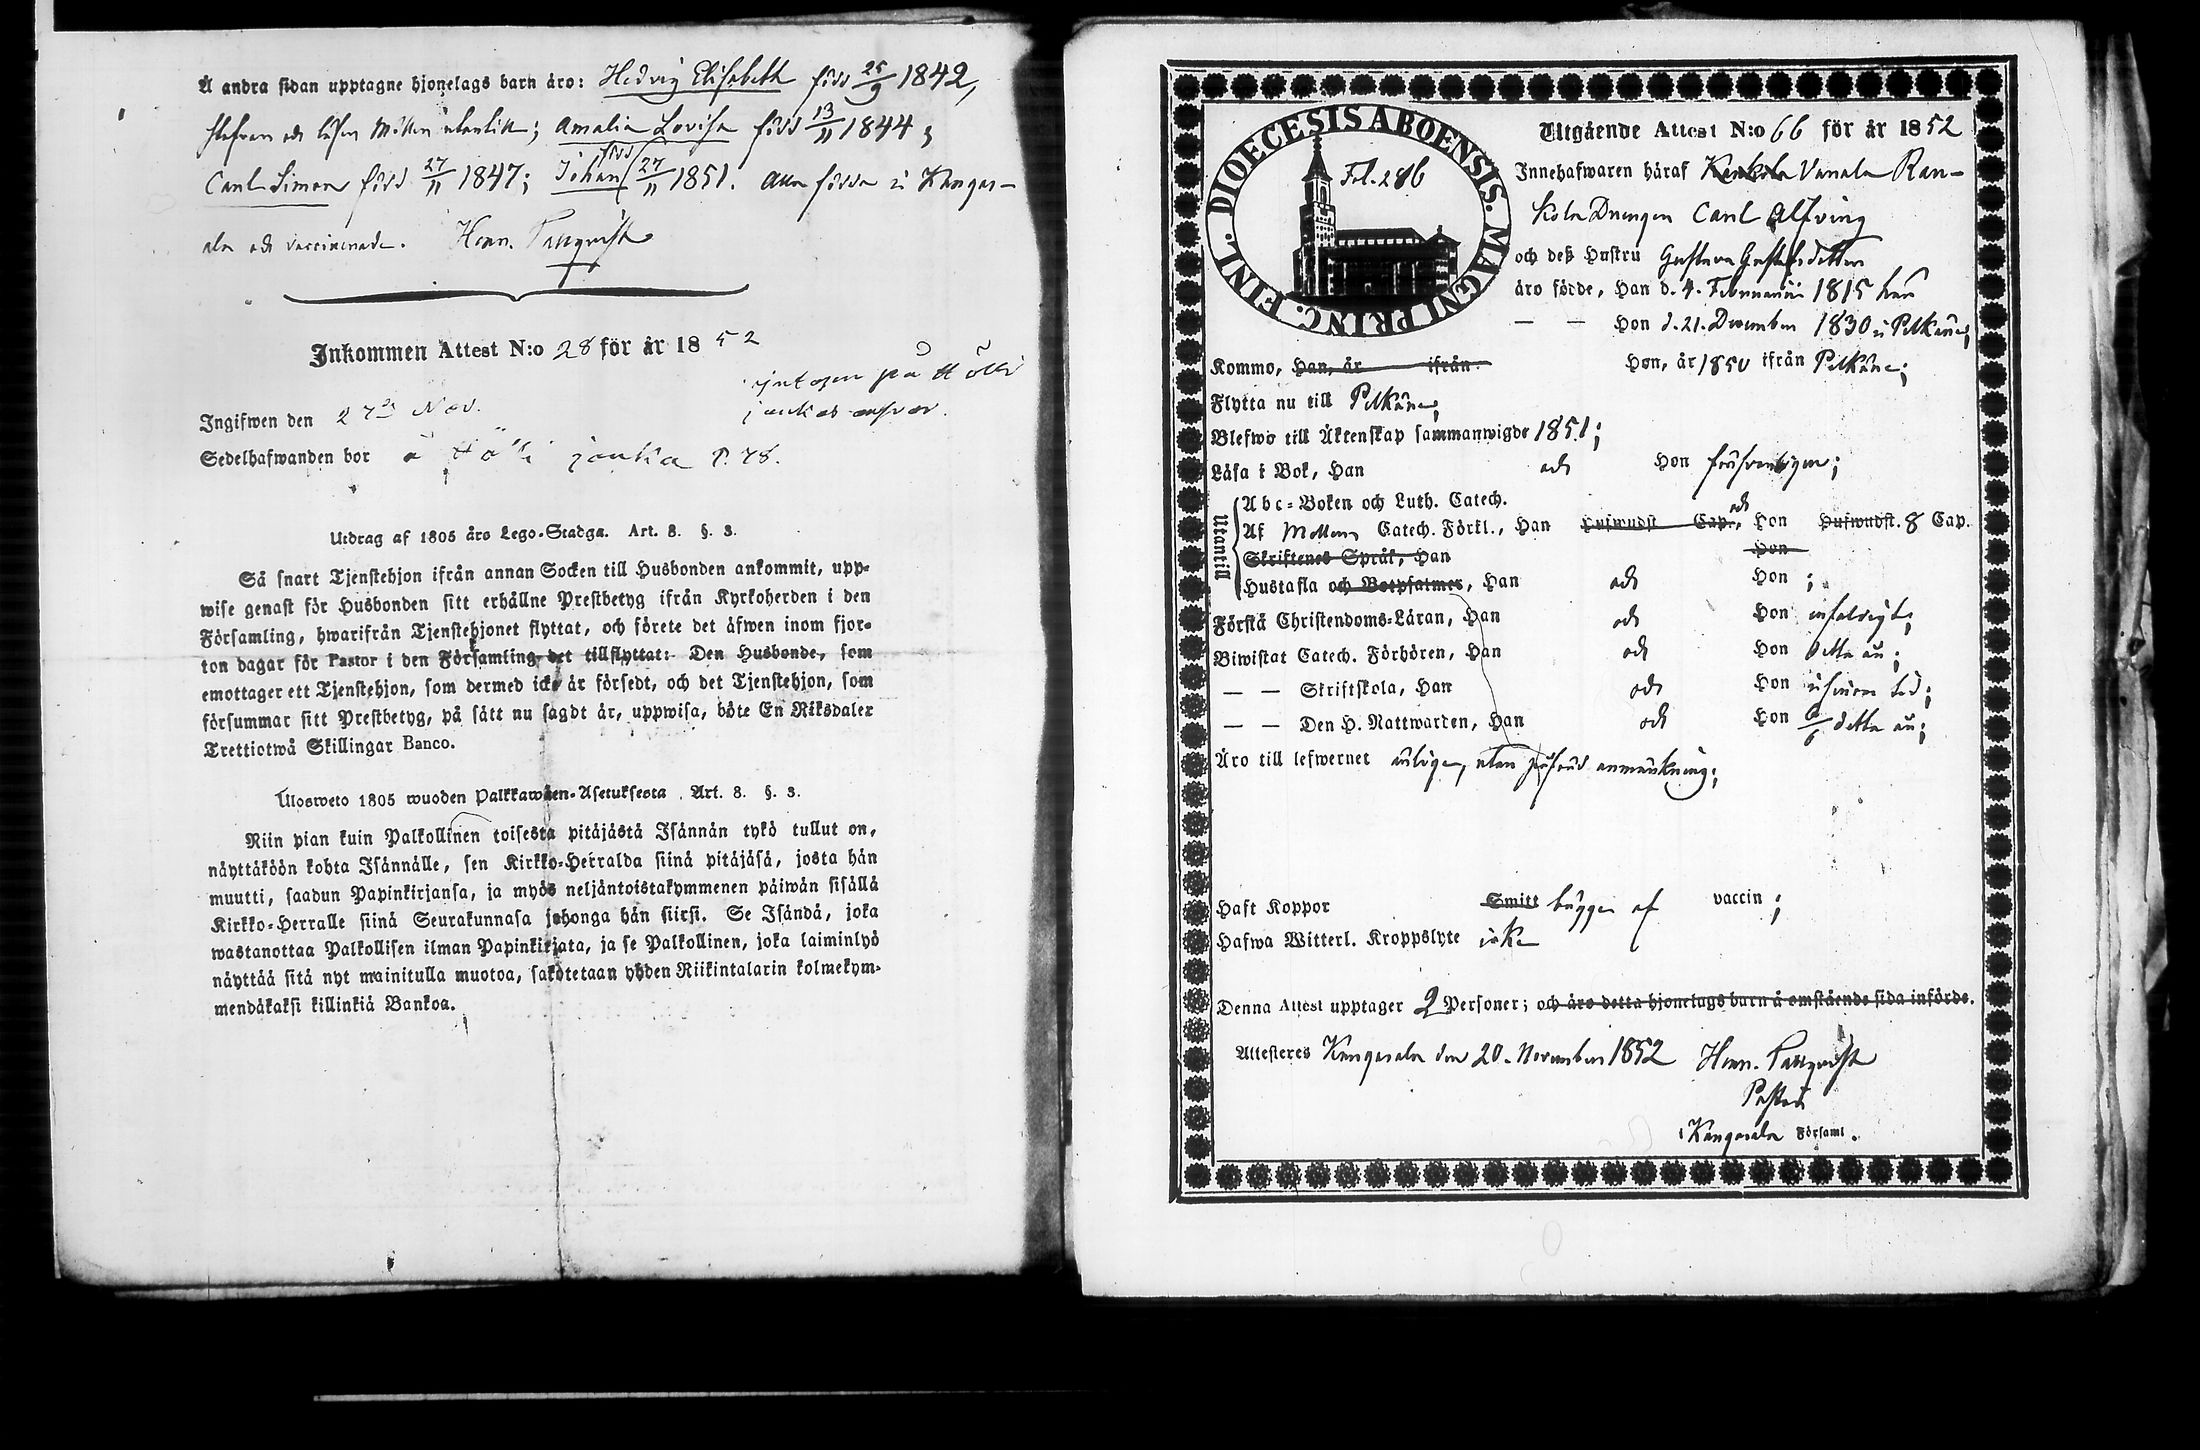 Å andra sidan upptagne hjonelags barn äro: Hedvig Elisabeth född 25/9 1842,
och läser Möllers utantill; Amalia Lovisa född 13/11 1844;
Carl Simon född 27/11 1847; Johan född 27/11 1851. Alla födda i Kangas-
ala och vaccinerade. Henr. Tallqvist
Inkommen Attest N:o 28 för år 1852
på Hölli
Ingifwen den 27de Nov. jankas ansvar.
Sedelhafwanden bor å Hölli jankka P. 78.
Utdrag af 1805 års Lego-Stadga. Art. 8. §. 3.
Så snart Tjenstehjon ifrån annan Socken till Husbonden ankommit, upp-
wise genast för Husbonden sitt erhållne Prestbetyg ifrån Kyrkoherden i den
Församling, hwarifrån Tjenstehjonet flyttat, och förete det äfwen inom fjor-
ton dagar för Pastor i den Församling det tillflyttat: Den Husbonde, som
emottager ett Tjenstehjon, som dermed icke är försedt, och det Tjenstehjon, som
försummar sitt Prestbetyg, på sätt nu sagdt är, uppwisa, böte En Riksdaler
Trettiotwå Skillingar Banco.
Ulosweto 1805 wuoden Palkkawäen-Asetuksesta. Art. 8. §. 3.
Niin pian kuin Palkollinen toisesta pitäjästä Isännän tykö tullut on,
näyttäköön kohta Isännälle, sen Kirkko-Herralda siinä pitäjäsä, josta hän
muutti, saadun Papinkirjansa, ja myös neljäntoistakymmenen päiwän sisällä
Kirkko-Herralle siinä Seurakunnasa johonga hän siirsi. Se Isändä, joka
wastanottaa Palkollisen ilman Papinkirjata, ja se Palkollinen, joka laiminlyö
näyttää sitä nyt mainitulla muotoa, sakotetaan yhden Riikintalarin kolmekym-
mendäkaksi killinkiä Bankoa.
DIOECESIS ABOENSIS. MAGNI PRINC. FINL.
Fol. 286
Utgående Attest N:o 66 för år 1852
Innehafwaren häraf Vanala Ran-
kola Drengen Carl Alfving
och deß Hustru Gustava Gustafsdotter
äro födde, Han d. 4. Februarii 1815 här
— — Hon d. 21. December 1830 i Pelkäne;
Kommo, Han, år ifrån Hon, år 1850 ifrån Pelkäne;
Flytta nu till Pelkäne;
Blefwo till Äktenskap sammanwigde 1851;
Läsa i Bok, Han och Hon försvarligen;
Utantill
Abc-Boken och Luth. Catech.
Af Möllers Catech. Förkl., Han Hufwudst Cap., och Hon Hufwudst. 8 Cap.
Skriftenes Språk, Han Hon
Hustafla och Botpsalmer, Han och Hon;
Förstå Christendoms-Läran, Han och Hon enfaldigt;
Biwistat Catech. Förhören, Han och Hon detta år;
— — Skriftskola, Han och Hon i sinom tid;
— — Den H. Nattwarden, Han och Hon detta år;
Äro till lefwernet ärlige, utan särskild anmärkning;
Haft Koppor Smitt bägge af vaccin;
Hafwa Witterl. Kroppslyte icke
Denna Attest upptager 2 Personer; och äro detta hjonelags barn å omstående sida införde.
Attesteres Kangasala den 20. November 1852 Henr. Tallqvist
Pastor
i Kangasala Församl.